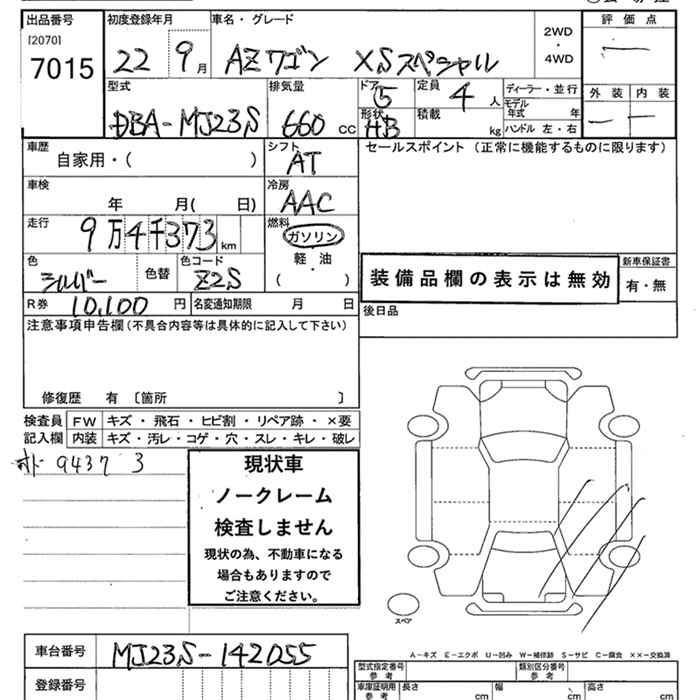 出品番号 初度登録年月 車名・グレード 2WD・4WD 評価点
[2070]
7015 22 9月 AZワゴン XSスペシャル
型式 排気量 ドア 5 定員 4人 ディーラー・並行 外装 内装
DBA-MJ23S 660cc 形状 HB 積載 kg モデル年式 年 ハンドル 左・右
車歴 自家用・( ) シフト AT セールスポイント (正常に機能するものに限ります)
車検 年 月( 日) 冷房 AAC
走行 9万4千373km 燃料 ガソリン 軽・油 ( )
色 シルバー 色替 色コード Z2S
装備品欄の表示は無効 新車保証書 有・無
R券 10,100円 名変通知期限 月 日 後日品
注意事項申告欄(不具合内容等は具体的に記入して下さい)
修復歴 有 〔箇所 〕
検査員記入欄 FW キズ・飛石・ヒビ割・リペア跡・×要
内装 キズ・汚レ・コゲ・穴・スレ・キレ・破レ
94373
現状車
ノークレーム
検査しません
現状の為、不動車になる
場合もありますので
ご注意ください。
スペア
A-キズ E-エクボ U-凹み W-補修跡 S-サビ C-腐食 ××-交換済
車台番号 MJ23S-142055
登録番号
型式指定番号 参考 類別区分番号 参考
車庫証明用 参考 長さ cm 幅 cm 高さ cm